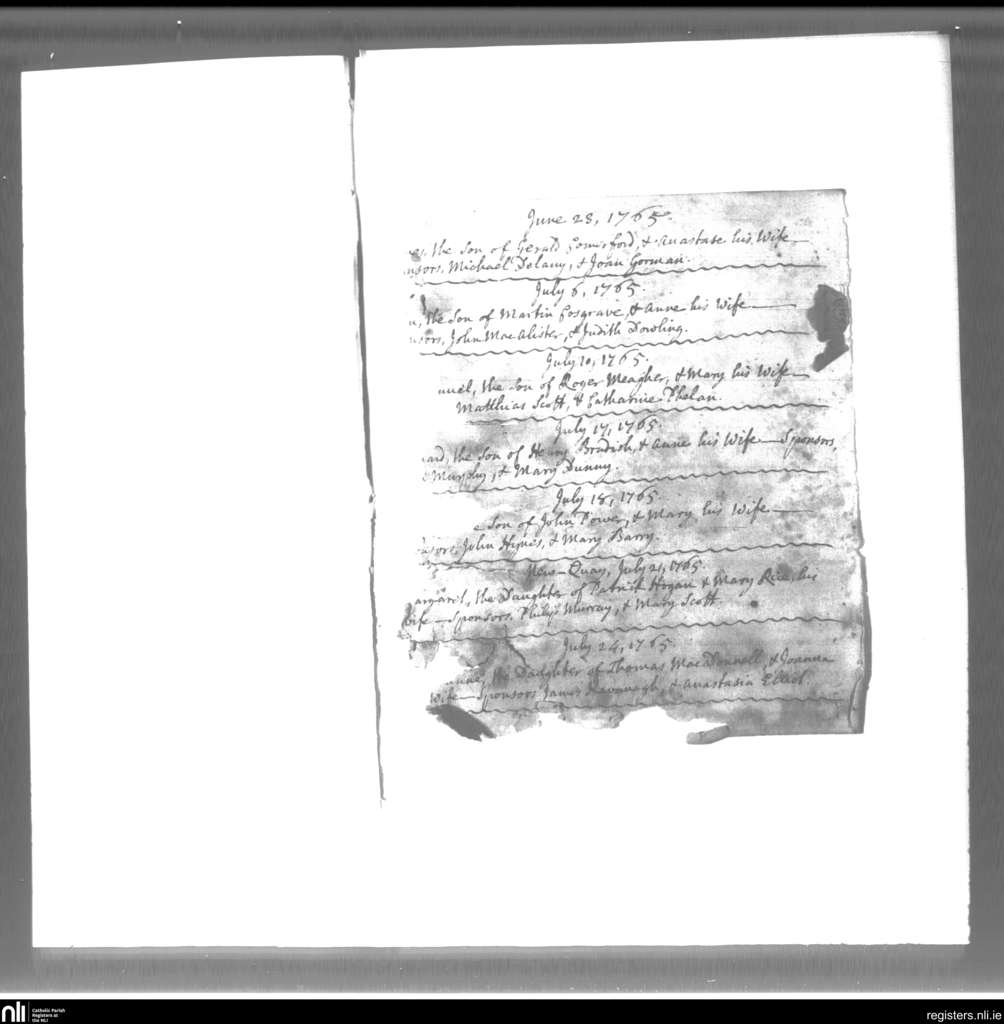 June 28, 1765.
es, the Son of Gerald Comerford, & Anastase his Wife
nsors, Michael Delany, & Joan Gorman.
July 6, 1765.
n, the Son of Martin Cosgrave, & Anne his Wife
nsors, John MacAlister, & Judith Dowling.
July 10, 1765.
nuel, the Son of Roger Meagher, & Mary his Wife
Matthias Scott, & Catharine Phelan.
July 17, 1765.
ard, the Son of Henry Bradish, & Anne his Wife — Sponsors,
Murphy, & Mary Dunny.
July 18, 1765.
e Son of John Power, & Mary his Wife
nsors, John Hynes, & Mary Barry.
New-Quay, July 21, 1765.
argaret, the Daughter of Patrick Hogan & Mary Rice, his
Wife — Sponsors, Philip Murray, & Mary Scott.
July 24, 1765.
anne, the Daughter of Thomas MacDonnell, & Joanna
Wife — Sponsors James Kavanagh, & Anastasia
nli
Catholic Parish
Registers at
the NLI
registers.nli.ie